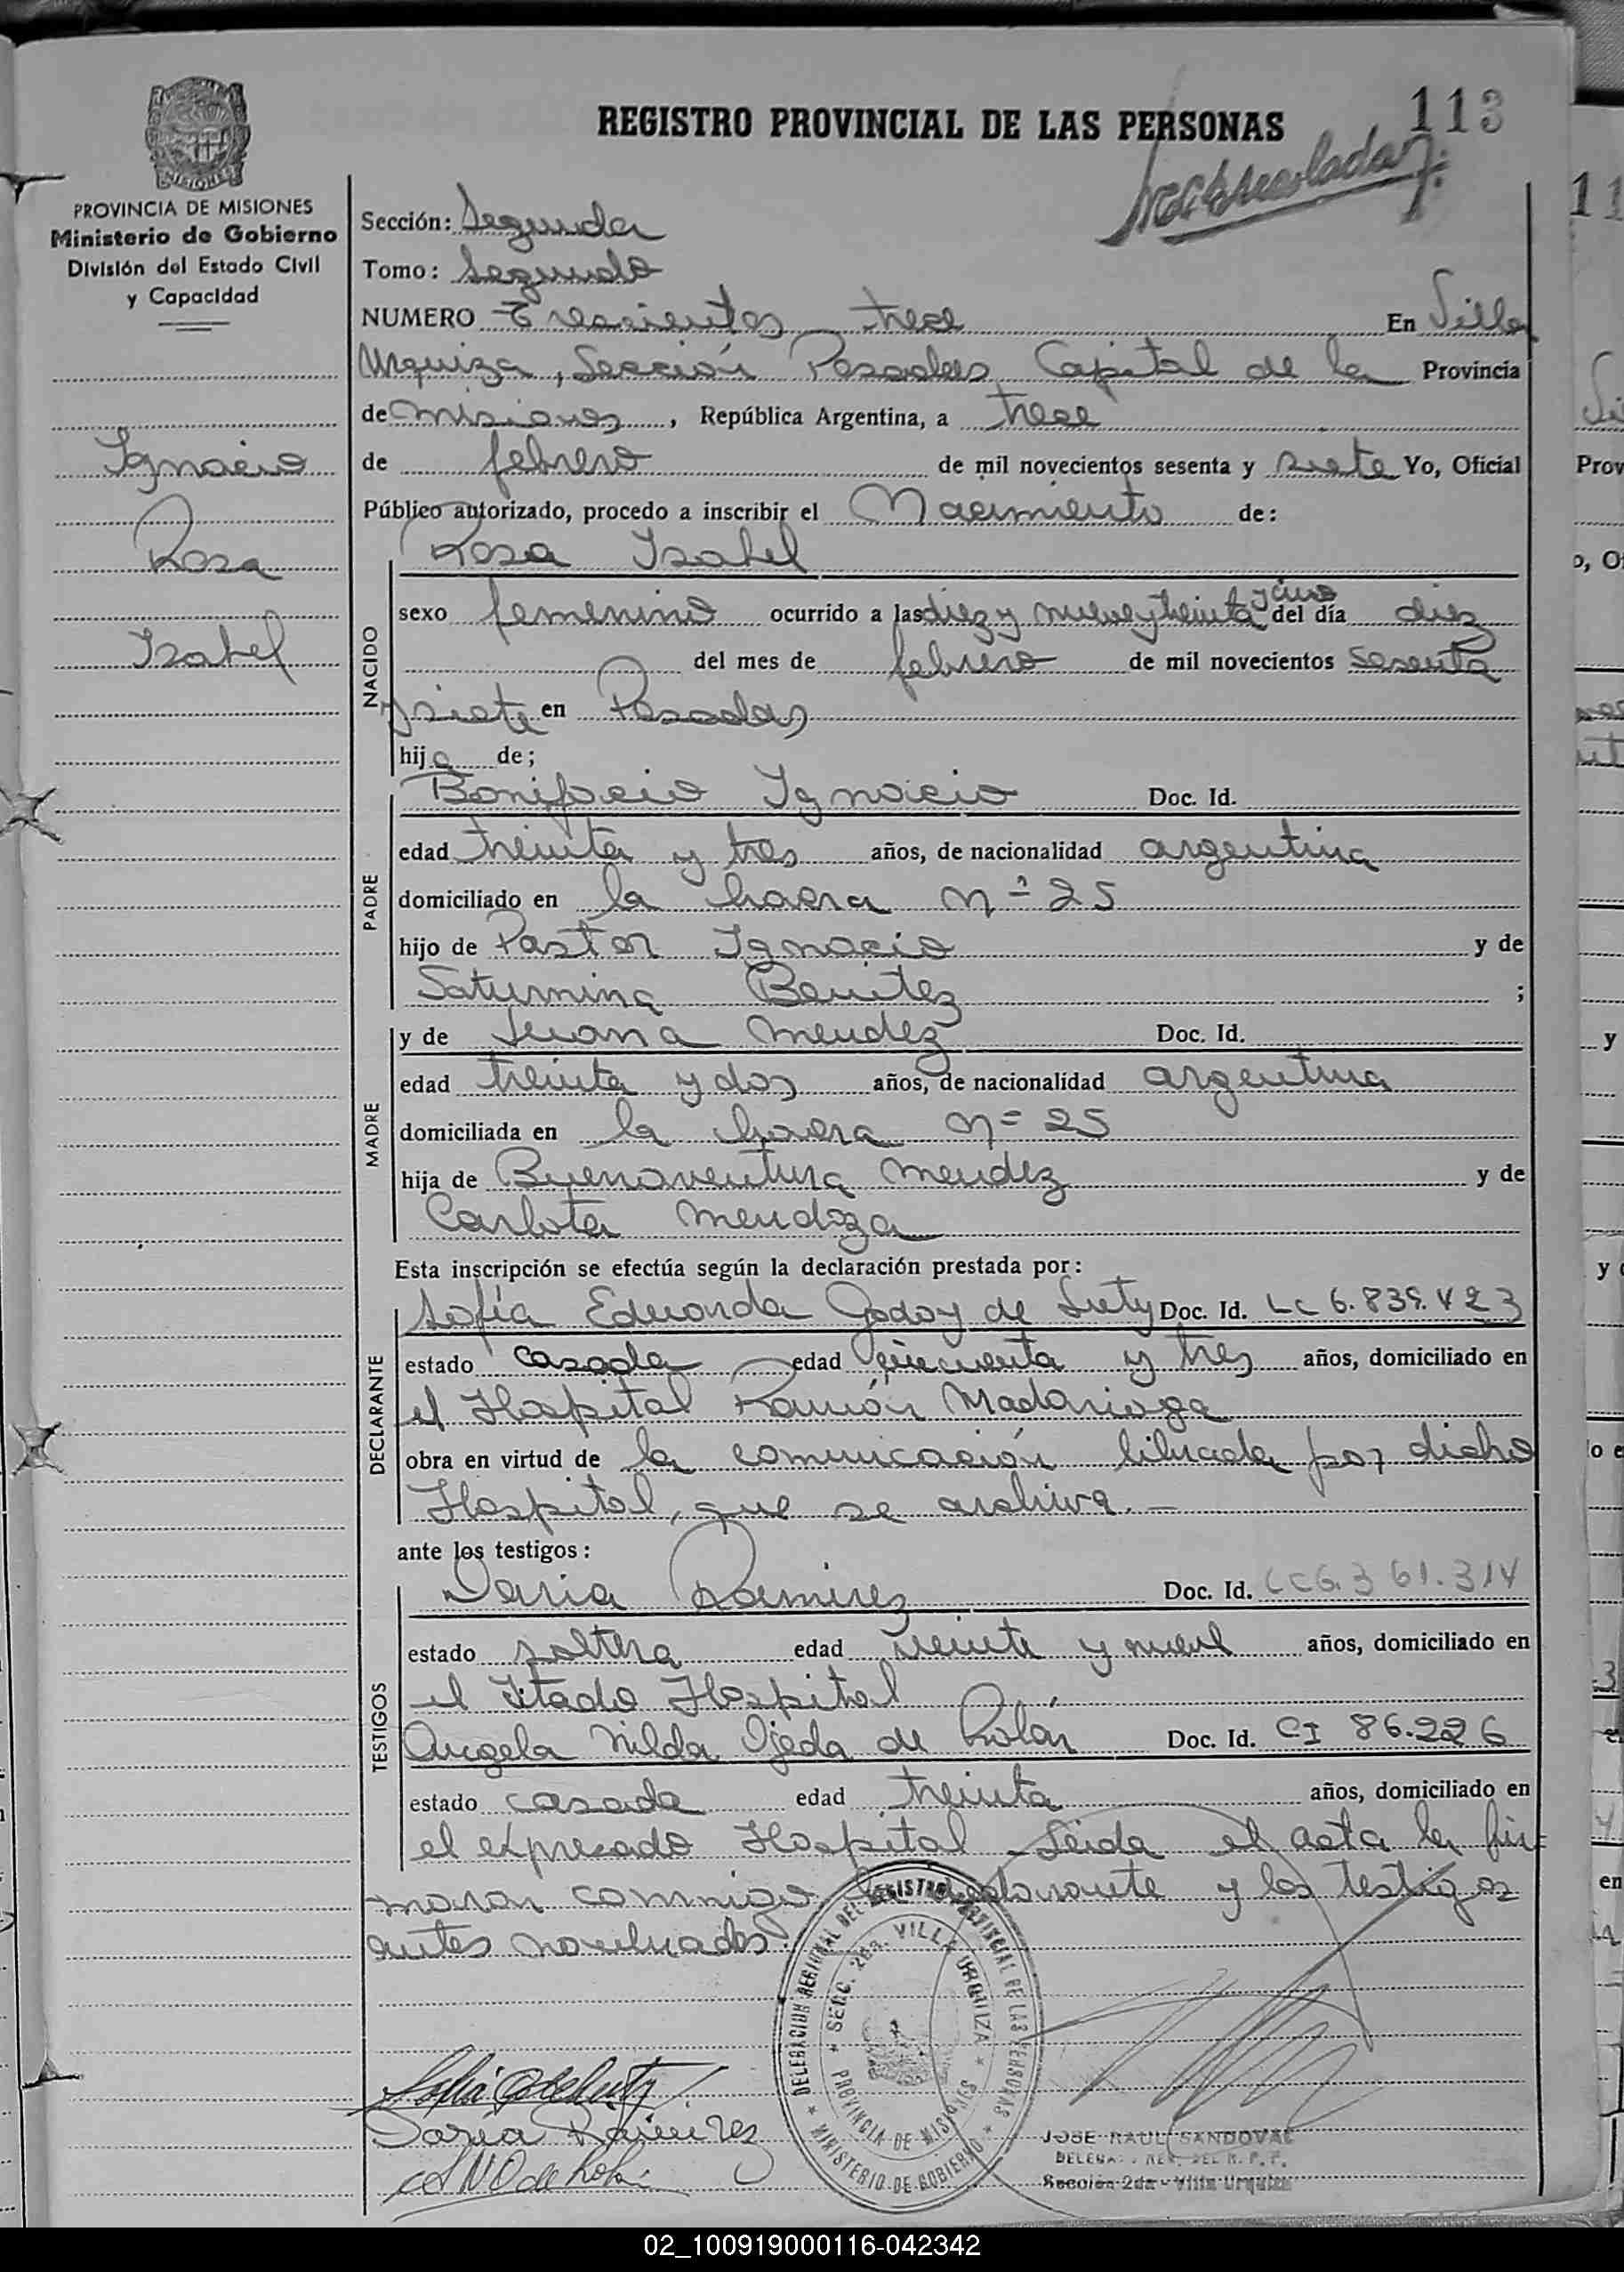 113
REGISTRO PROVINCIAL DE LAS PERSONAS
MISIONES
PROVINCIA DE MISIONES
Ministerio de Gobierno
División del Estado Civil
y Capacidad
Ignacio
Rosa
Isabel
Sección: Segunda
Tomo: Segundo
NUMERO Trescientos trece En Villa
Urquiza, Sección Posadas Capital de la Provincia
de Misiones, República Argentina, a trece
de febrero de mil novecientos sesenta y siete Yo, Oficial
Público autorizado, procedo a inscribir el Nacimiento de:
Rosa Isabel
NACIDO
sexo femenino ocurrido a las diez y nueve y treinta y cinco del día diez
del mes de febrero de mil novecientos sesenta
y siete en Posadas
hija de;
PADRE
Bonifacio Ignacio Doc. Id.
edad treinta y tres años, de nacionalidad argentina
domiciliado en la chacra nº 25
hijo de Pastor Ignacio y de
Saturnina Benitez ;
MADRE
y de Juana Mendez Doc. Id.
edad treinta y dos años, de nacionalidad argentina
domiciliada en la chacra nº 25
hija de Buenaventura Mendez y de
Carlota Mendoza
Esta inscripción se efectúa según la declaración prestada por:
DECLARANTE
Sofía Eduarda Godoy de Doc. Id. LC 6.839.423
estado casada edad cincuenta y tres años, domiciliado en
el Hospital Ramón Madariaga
obra en virtud de la comunicación librada por dicho
Hospital, que se archiva.-
ante los testigos:
TESTIGOS
Daria Ramirez Doc. Id. LC 6.361.314
estado soltera edad veinte y nueve años, domiciliado en
el citado Hospital
Angela Nilda Ojeda de Rolón Doc. Id. CI 86.226
estado casada edad treinta años, domiciliado en
el expresado Hospital Leida el acta la fir-
maron conmigo la declarante y los testigos
antes nombrados.
DELEGACION REGIONAL DEL REGISTRO PROVINCIAL DE LAS PERSONAS
SECC. 2da. VILLA URQUIZA
PROVINCIA DE MISIONES
MINISTERIO DE GOBIERNO
Daria Ramirez
JOSE RAUL SANDOVAL
Sección 2da - Villa Urquiza
02_100919000116-042342